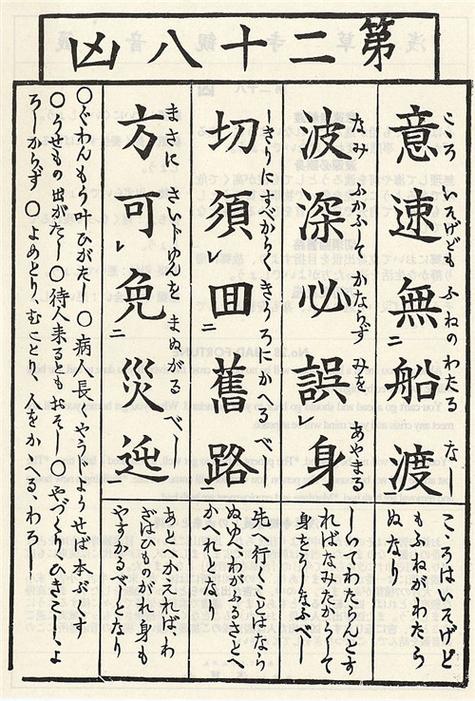 第二十八凶
こゝろ いそげども ふねのわたる なし
意速無二船渡一
こゝろはいそげど
もふねがわたら
ぬなり
なみ ふかふして かならず みを あやまる
波深必誤レ身
しいてわたらんとす
ればなみたかうして
身をうしなふべし
しきりにすべからく きうろにかへるべし
切須囬二舊路一
先へ行くことはなら
ぬゆへ、わがふるさとへ
かへれとなり
まさに さいじゆんを まぬがるべし
方可レ免二災迍一
あとへかえれば、わ
ざはひものがれ身も
やすかるべしとなり
〇ぐわんもう叶ひがたし 〇病長し、やうじようせば本ぶくす
〇うせもの出がたし 〇待人来るともおそし 〇やづくり、ひきこし、よ
ろしからず 〇よめとり、むことり、人をかゝへる、わろし